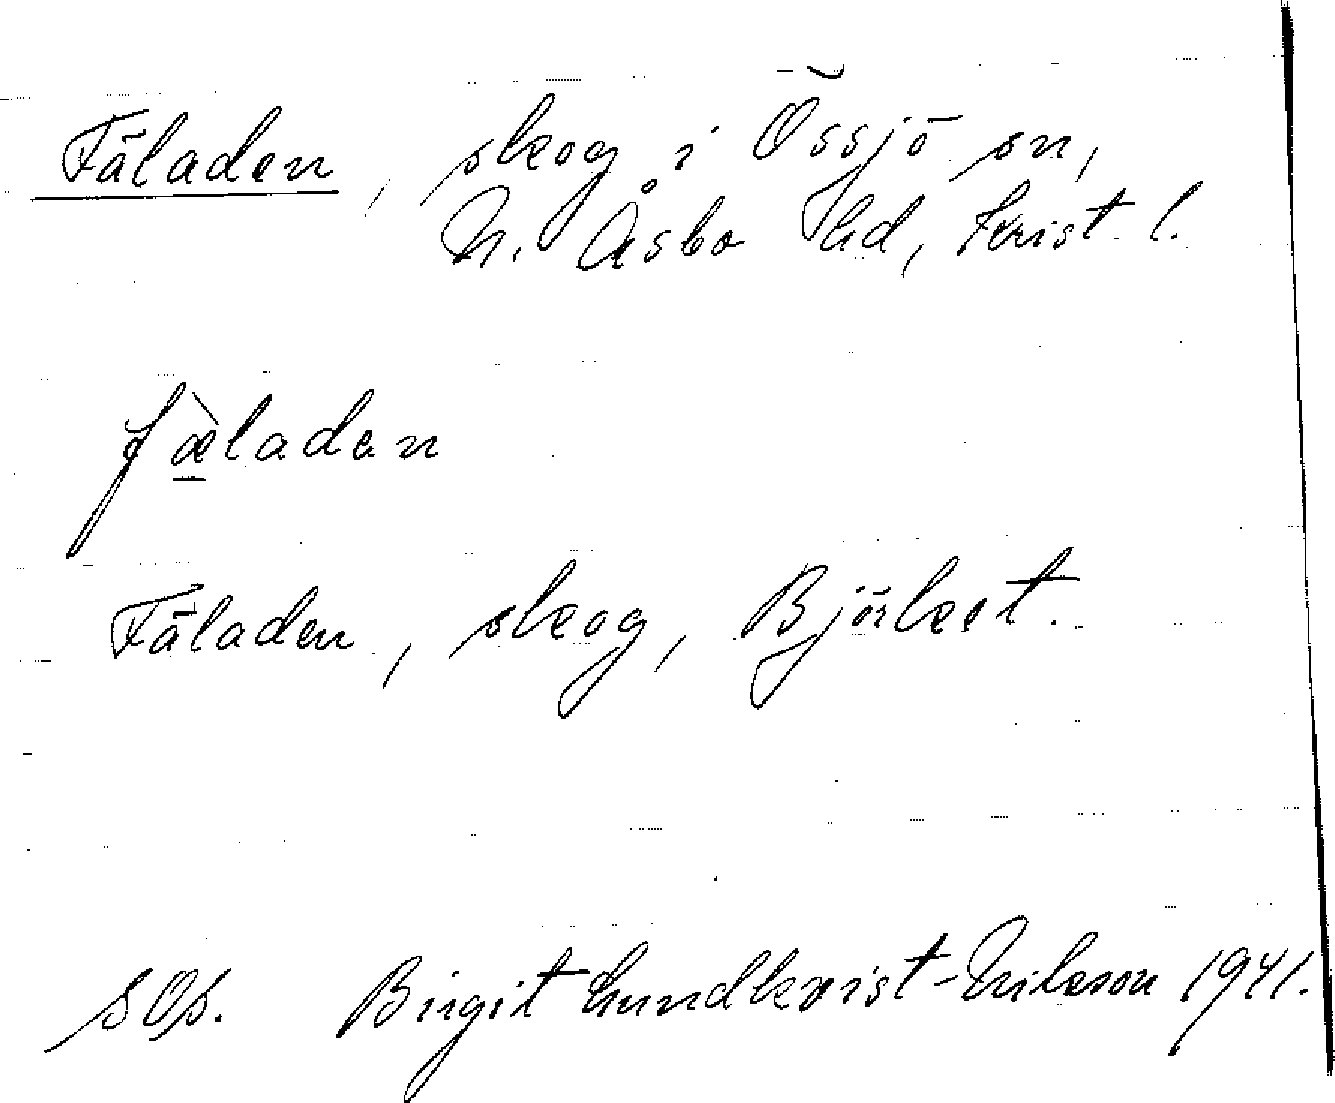 Fäladen, skog i Össjö sn,
N. Åsbo hd, Krist. l.
fæ̀laden
Fäladen, skog, Björket.
sOs. Birgit Lundkvist-Nilsson 1941.